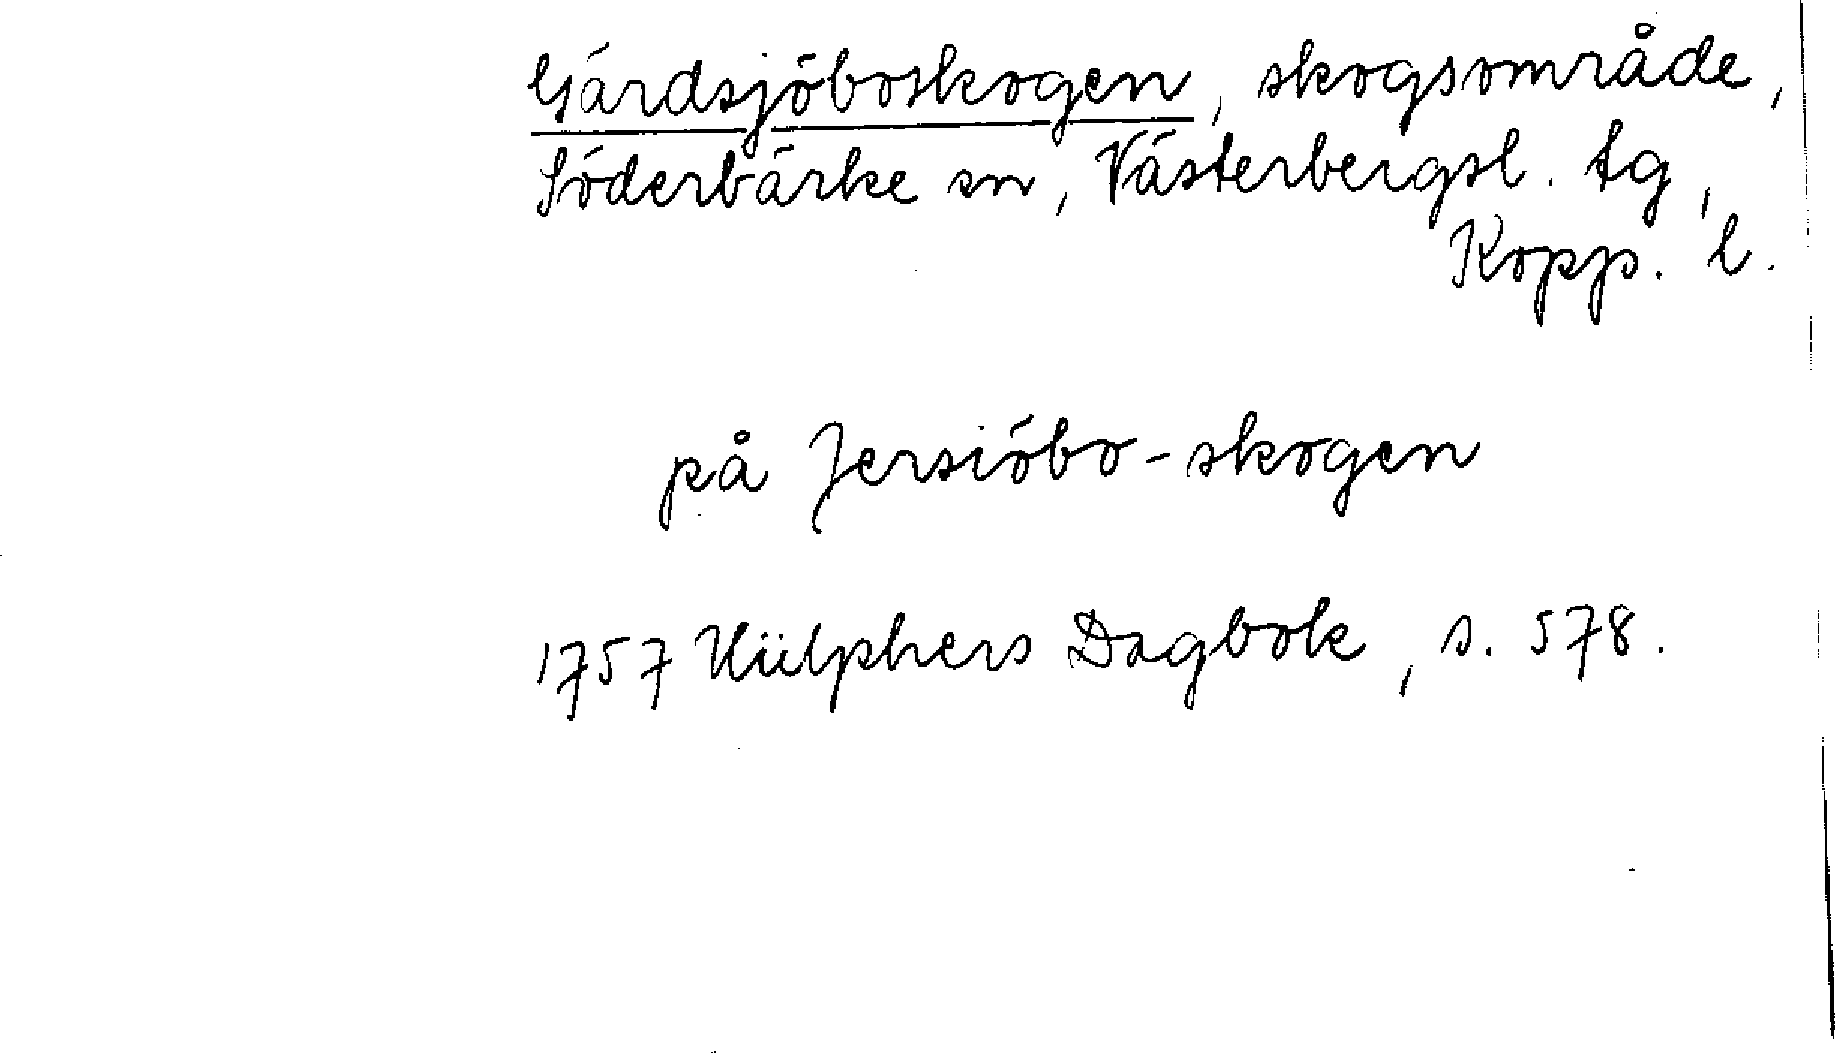 Gärdsjöboskogen, skogsområde,
Söderbärke sn, Västerbergsl. tg,
Kopp. l.
på Jersiöbo-skogen
1757 Hülphers Dagbok, s. 578.